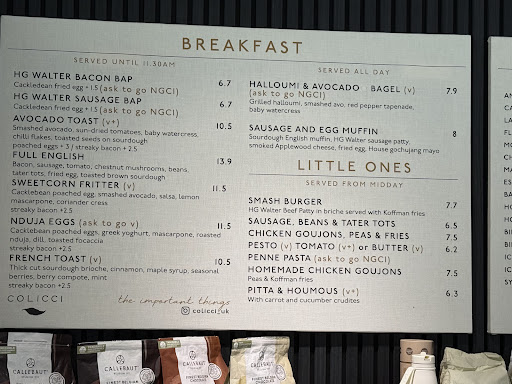 BREAKFAST
SERVED UNTIL 11.30AM
HG WALTER BACON BAP 6.7
Cackledean fried egg +1.5 (ask to go NGCI)
HG WALTER SAUSAGE BAP 6.7
Cackledean fried egg +1.5 (ask to go NGCI)
AVOCADO TOAST (v+) 10.5
Smashed avocado, sun-dried tomatoes, baby watercress,
chilli flakes, toasted seeds on sourdough
poached eggs +3 / streaky bacon +2.5
FULL ENGLISH 13.9
Bacon, sausage, tomato, chestnut mushrooms, beans,
tater tots, fried egg, toasted brown sourdough
SWEETCORN FRITTER (v) 11.5
Cacklebean poached egg, smashed avocado, salsa, lemon
mascarpone, coriander cress
streaky bacon +2.5
NDUJA EGGS (ask to go v) 11.5
Cacklebean poached eggs, greek yoghurt, mascarpone, roasted
nduja, dill, toasted focaccia
streaky bacon +2.5
FRENCH TOAST (v) 10.5
Thick cut sourdough brioche, cinnamon, maple syrup, seasonal
berries, berry compote, mint
streaky bacon +2.5
COLICCI
the important things
colicci_uk
SERVED ALL DAY
HALLOUMI & AVOCADO BAGEL (v) 7.9
(ask to go NGCI)
Grilled halloumi, smashed avo, red pepper tapenade,
baby watercress
SAUSAGE AND EGG MUFFIN 8
Sourdough English muffin, HG Walter sausage patty,
smoked Applewood cheese, fried egg, House gochujang mayo
LITTLE ONES
SERVED FROM MIDDAY
SMASH BURGER 7.7
HG Walter Beef Patty in brioche served with Koffman fries
SAUSAGE, BEANS & TATER TOTS 6.5
CHICKEN GOUJONS, PEAS & FRIES 7.5
PESTO (v) TOMATO (v+) or BUTTER (v) 6.2
PENNE PASTA (ask to go NGCI)
HOMEMADE CHICKEN GOUJONS 7.5
Peas & Koffman fries
PITTA & HOUMOUS (v+) 6.3
With carrot and cucumber crudites
CALLEBAUT
CALLEBAUT
CALLEBAUT